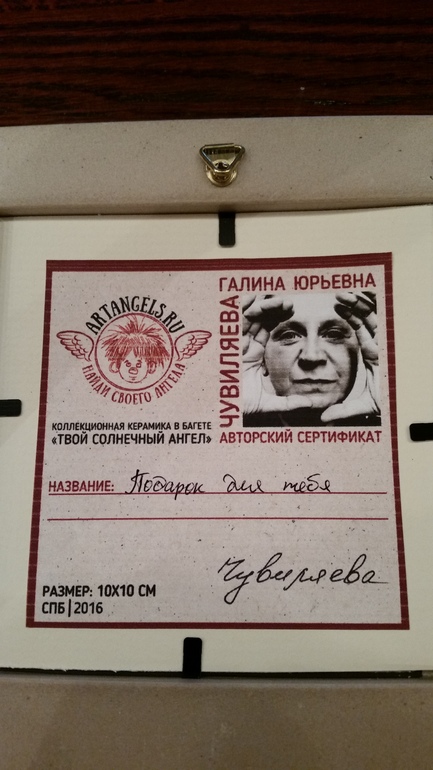 ARTANGELS.RU
НАЙДИ СВОЕГО АНГЕЛА
КОЛЛЕКЦИОННАЯ КЕРАМИКА В БАГЕТЕ
«ТВОЙ СОЛНЕЧНЫЙ АНГЕЛ»
ГАЛИНА ЮРЬЕВНА
ЧУВИЛЯЕВА
АВТОРСКИЙ СЕРТИФИКАТ
НАЗВАНИЕ: Подарок для тебя
Чувиляева
РАЗМЕР: 10Х10 СМ
СПБ|2016